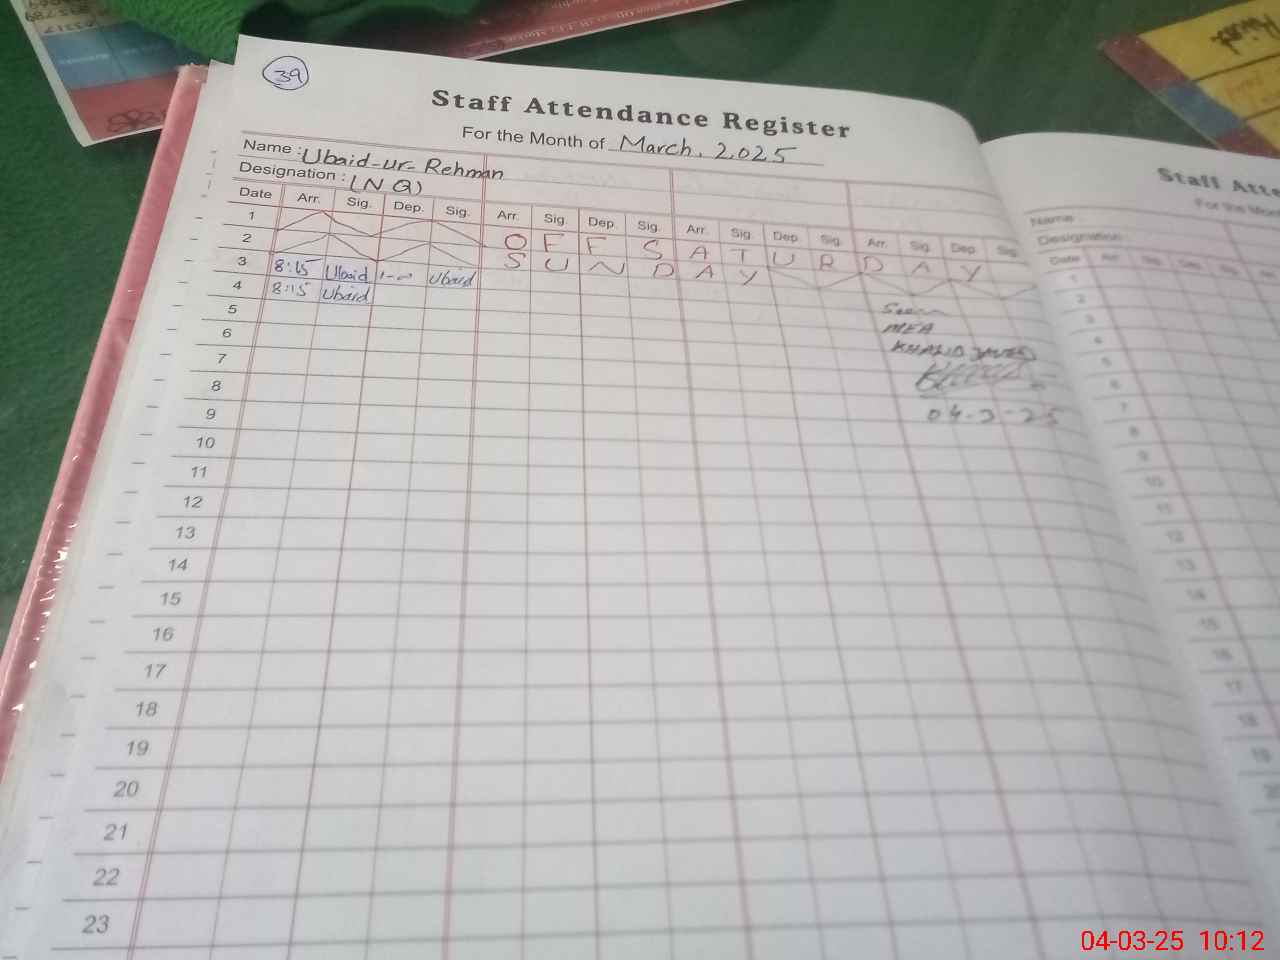 39
Staff Attendance Register
For the Month of March, 2025
Name : Ubaid-ur-Rehman
Designation : (N Q)
Date Arr. Sig. Dep. Sig. Arr. Sig. Dep. Sig. Arr. Sig. Dep. Sig. Arr. Sig. Dep. Sig.
1 OFF SATURDAY
2 SUNDAY
3 8:15 Ubaid 1-00 Ubaid
4 8:15 Ubaid
5 Seen
6 MEA
7 KHALID JAVED
8
9 04-3-25
10
11
12
13
14
15
16
17
18
19
20
21
22
23
Staff Atte
For the Mon
Name
Designation
Date Arr. Sig. Dep.
1
2
3
4
5
6
7
8
9
10
11
12
13
14
15
16
17
18
19
04-03-25 10:12